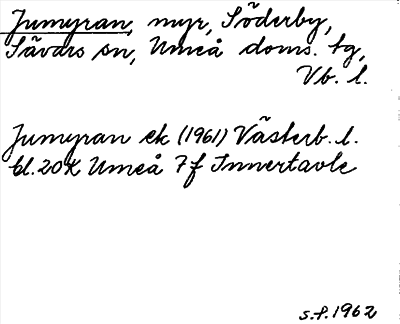 Jumyran, myr, Söderby,
Sävars sn, Umeå doms. tg,
Vb. l.
Jumyran ek (1961) Västerb. l.
bl. 20K Umeå 7f Innertavle
s.f. 1962